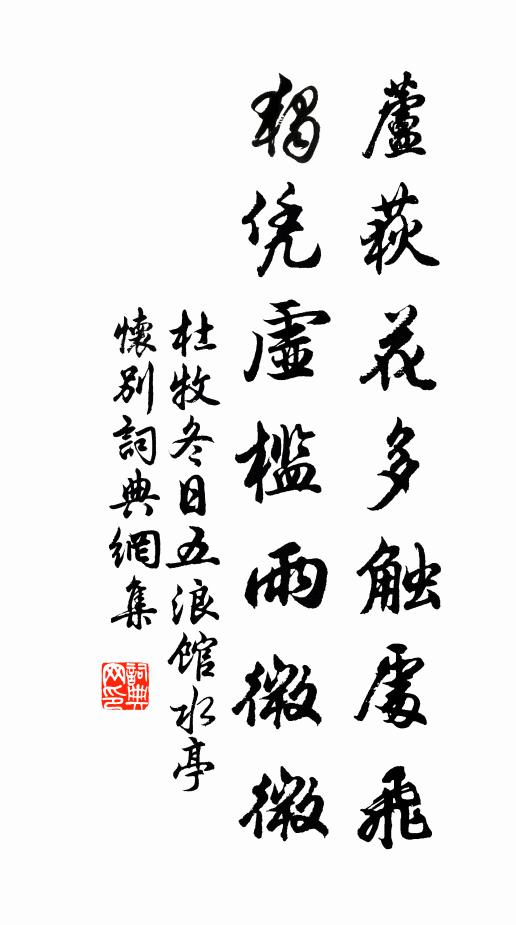 蘆荻花多触處飛
獨凭虛檻雨微微
杜牧冬日五浪館水亭
懷別詞典網集
詞典网印